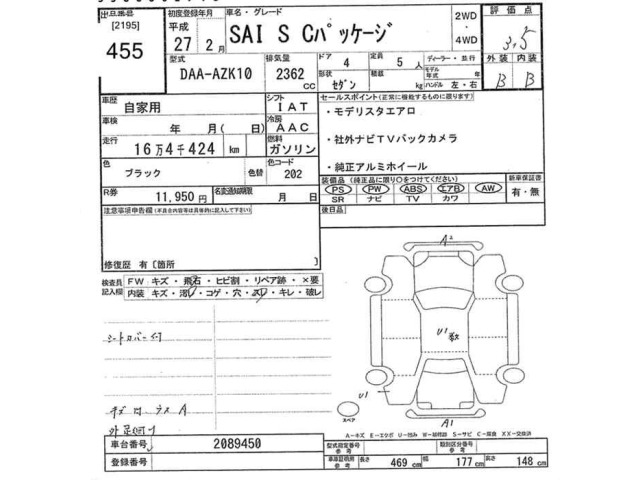 出品番号
[2195]
455
初度登録年月
平成
27 2月
車名・グレード
SAI S Cパッケージ
2WD
・
4WD
評価点
3.5
外装 内装
B B
型式
DAA-AZK10
排気量
2362
CC
ドア
4
形状
セダン
定員
5 人
積載
kg
ディーラー・並行
モデル
年式 年
ハンドル 左・右
車歴
自家用
シフト
IAT
車検
年 月( 日)
冷房
AAC
走行
16万4千424 km
燃料
ガソリン
色
ブラック
色替
色コード
202
R券
11,950 円
名変通知期限
月 日
セールスポイント(正常に機能するものに限ります)
・モデリスタエアロ
・社外ナビTVバックカメラ
・純正アルミホイール
装備品(純正品に限り○をつけてください)
PS PW ABS エアB AW
SR ナビ TV カワ
新車保証書
有・無
後日品
注意事項申告欄(不具合内容等は具体的に記入して下さい)
修復歴 有〔箇所 〕
検査員
記入欄
FW キズ・飛石・ヒビ割・リペア跡・×要
内装 キズ・汚レ・コゲ・穴・スレ・キレ・破レ
シートカバー付
A2
U1
U1
A1
スペア
A-キズ E-エクボ U-凹み W-補修跡 S-サビ C-腐食 XX-交換済
車台番号
2089450
登録番号
型式指定番号
参考
類別区分番号
参考
車庫証明用
参考
長さ 469 cm 幅 177 cm 高さ 148 cm